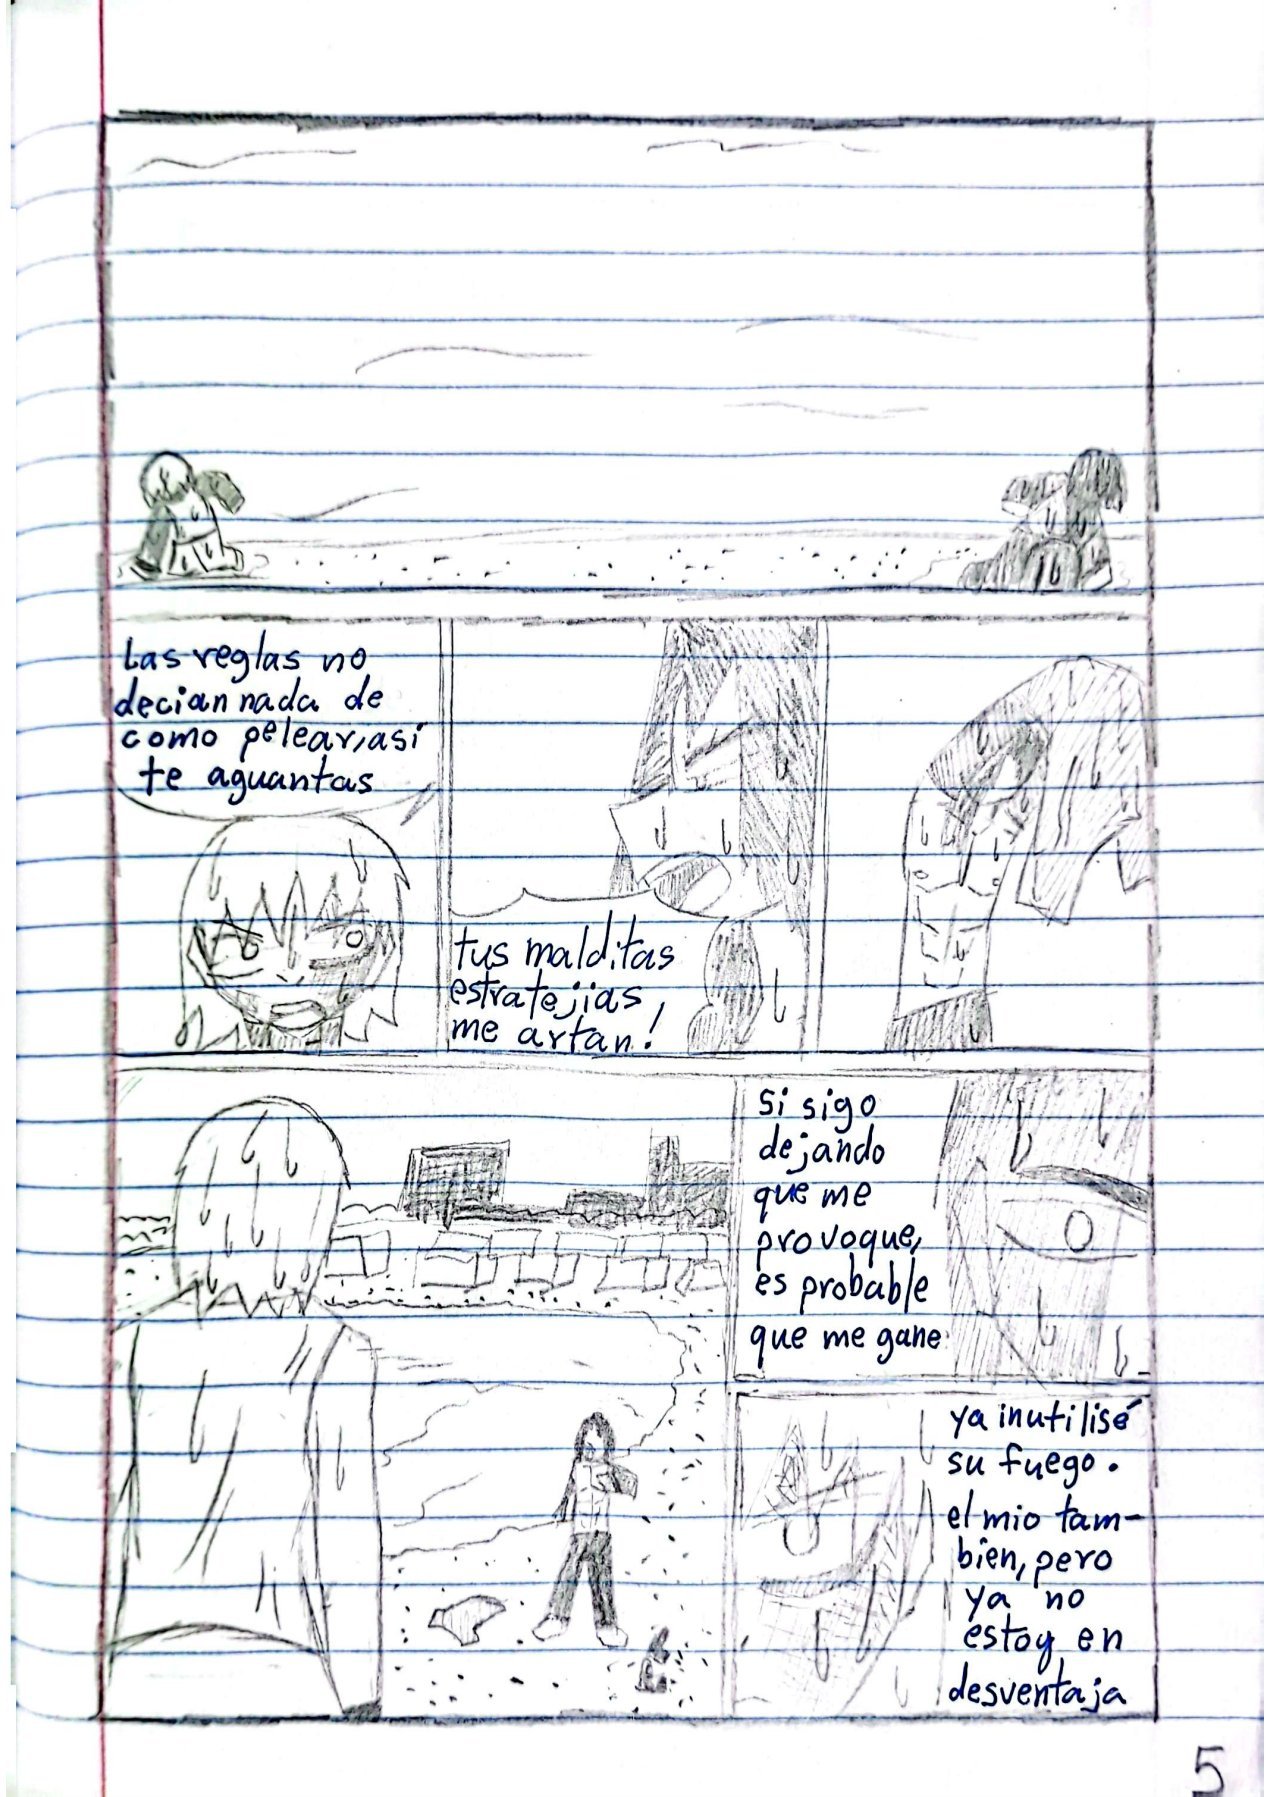 Las reglas no
decian nada de
como pelear, asi
te aguantas
tus malditas
estratejias
me artan!
Si sigo
dejando
que me
provoque,
es probable
que me gane
ya inutilisé
su fuego.
el mio tam-
bien, pero
ya no
estoy en
desventaja
5